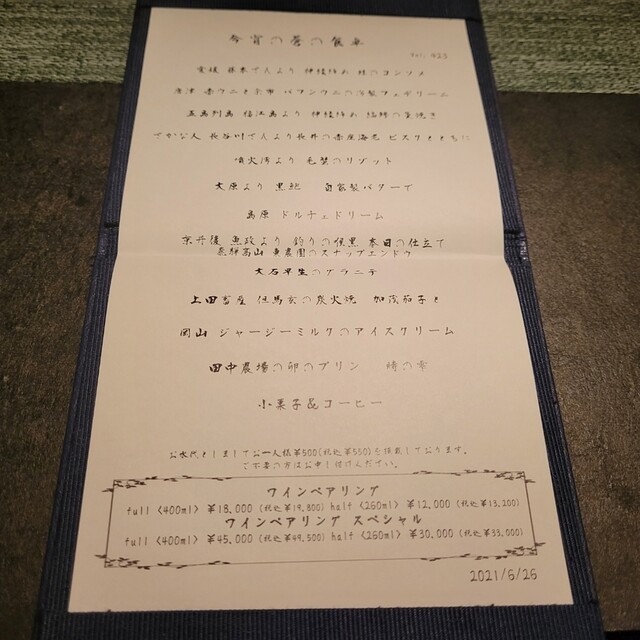 今宵の蒼の餐卓
vol. 423
愛媛 藤本さんより 伊佐木 鮭のコンソメ
唐津 赤ウニと余市 バフンウニの冷製フェデリーニ
五島列島 福江島より 伊佐木 の藁焼き
でかな人 長谷川さんより長井の赤座海老 ビスクとともに
噴火湾より 毛蟹のリゾット
大原より 黒鮑 自家製バターで
島原 ドルチェドリーム
京丹後 魚政より 釣りの喉黒 本日の仕立て
飛騨高山 東農園のスナップエンドウ
大石早生のグラニテ
上田畜産 但馬玄の炭火焼 加茂茄子と
岡山 ジャージーミルクのアイスクリーム
田中農場の卵のプリン 時の雫
小菓子&コーヒー
お水代としましてお一人様¥500(税込¥550)を頂戴しております。
ご不要の方はお申し付けください。
ワインペアリング
full <400ml> ¥18,000 (税込¥19,800) half <260ml> ¥12,000 (税込¥13,200)
ワインペアリング スペシャル
full <400ml> ¥45,000 (税込¥49,500) half <260ml> ¥30,000 (税込¥33,000)
2021/6/26